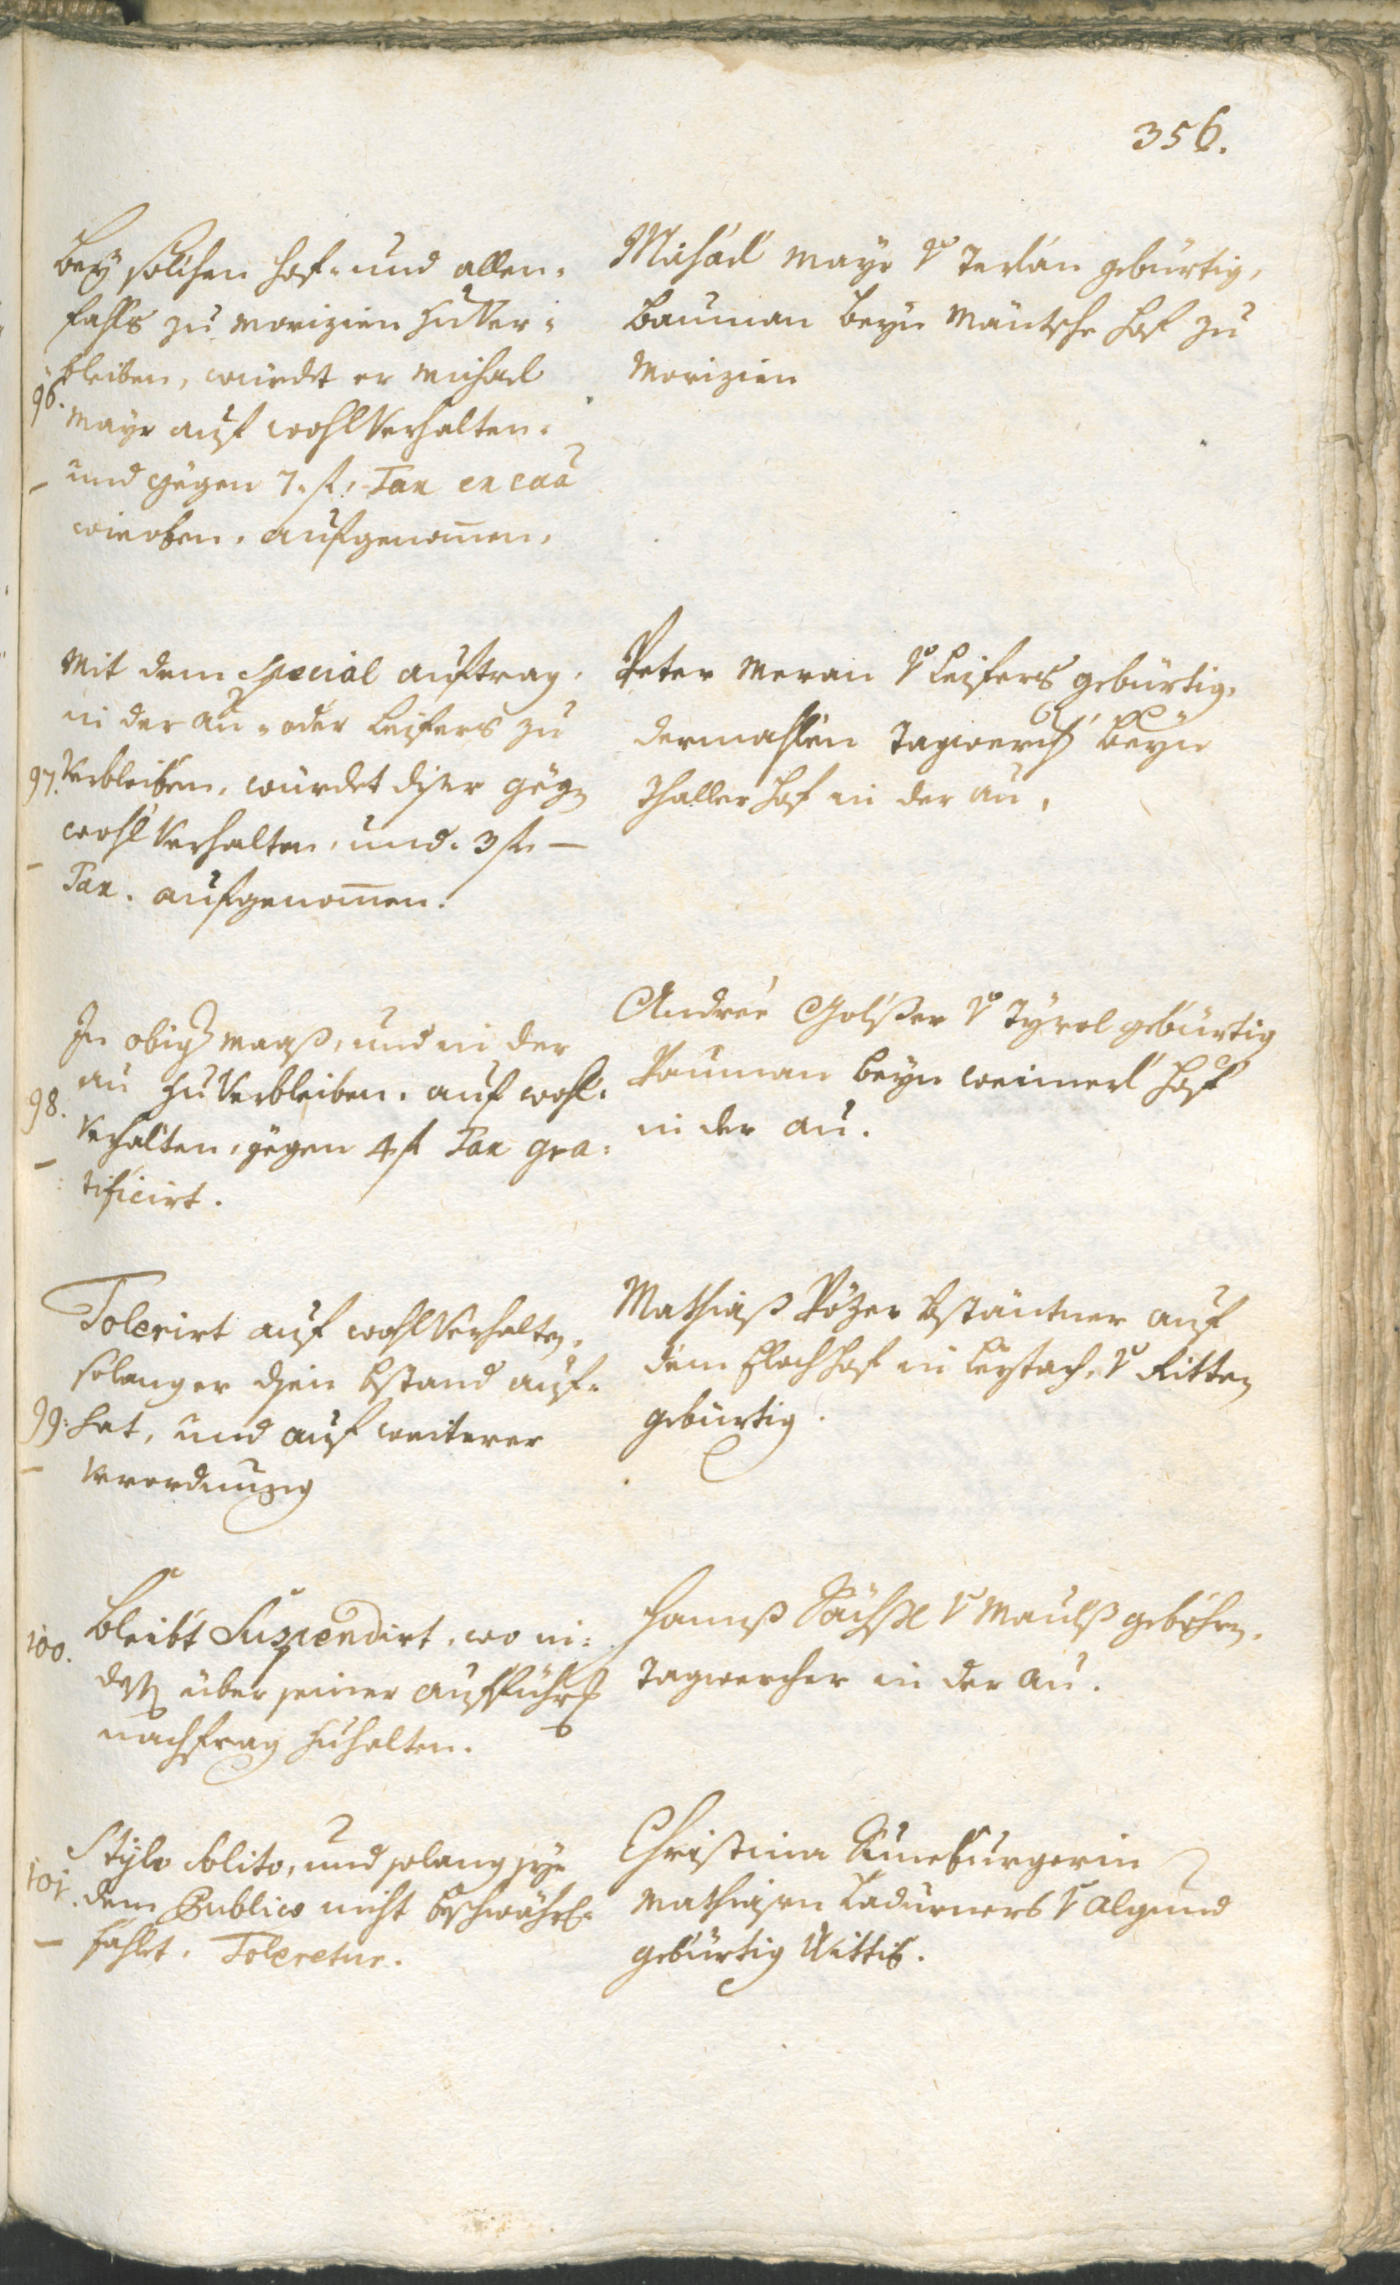 356.
Bey solchen Hof- und allen-
fahls zu Morizien zu Ver-
bleiben, würdet er Michael
96.
Mayr auf wohl Verhalten-
und gëgen 7. f. Tax ex caa
wie oben. aufgenom̅en.
Michael Mayr v Terlan gebürtig,
Bauman beyn Mäntsche Hof zu
Morizien
Mit dem Special auftrag.
in der Au- oder Leifers zu
97. Verbleiben. würdet diser gëgen
wohl Verhalten, und. 3 f. —
Tax. aufgenom̅en.
Peter Meran v Leifers gebürtig.
dermahlen Tagwerch beyn
Thaller Hof in der Au,
In obig Maaß, und in der
Au zu Verbleiben. auf wohl-
98.
Verhalten, gëgen 4 f Tax gra-
tificirt.
Andree Golßer v Tyrol gebürtig
Pauman beyn Weimerl Hof
in der Au.
Tolerirt auf wohl Verhalten.
solang er disen Bstand auf-
99. hat, und auf weiterer
Verordnung
Mathiaß Pözer Bstäntner auf
dem Hof in Leytach, v Ritten
gebürtig.
100. Bleibt Suspendirt. wo in-
dessen über seiner aufführung
nachfrag zuhalten.
Hannß v Maulß gebohrn.
Tagwercher in der Au.
Stylo solito, und solang sye
101. dem Publico nicht bschwährl.
fahlet. Toleretur.
Christina
Mathiasen Ladurners v Algund
gebürtig Wittib.